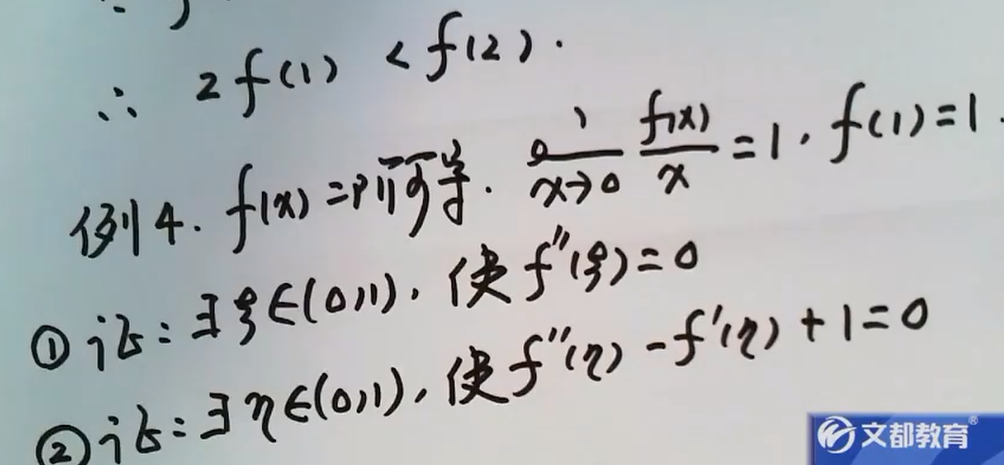 ∴ 2f(1) < f(2).
例4. f(x)二阶可导. lim x→0 f(x)/x = 1, f(1)=1.
①证: ∃ξ∈(0,1), 使f''(ξ)=0
②证: ∃η∈(0,1), 使f''(η)-f'(η)+1=0
文都教育®